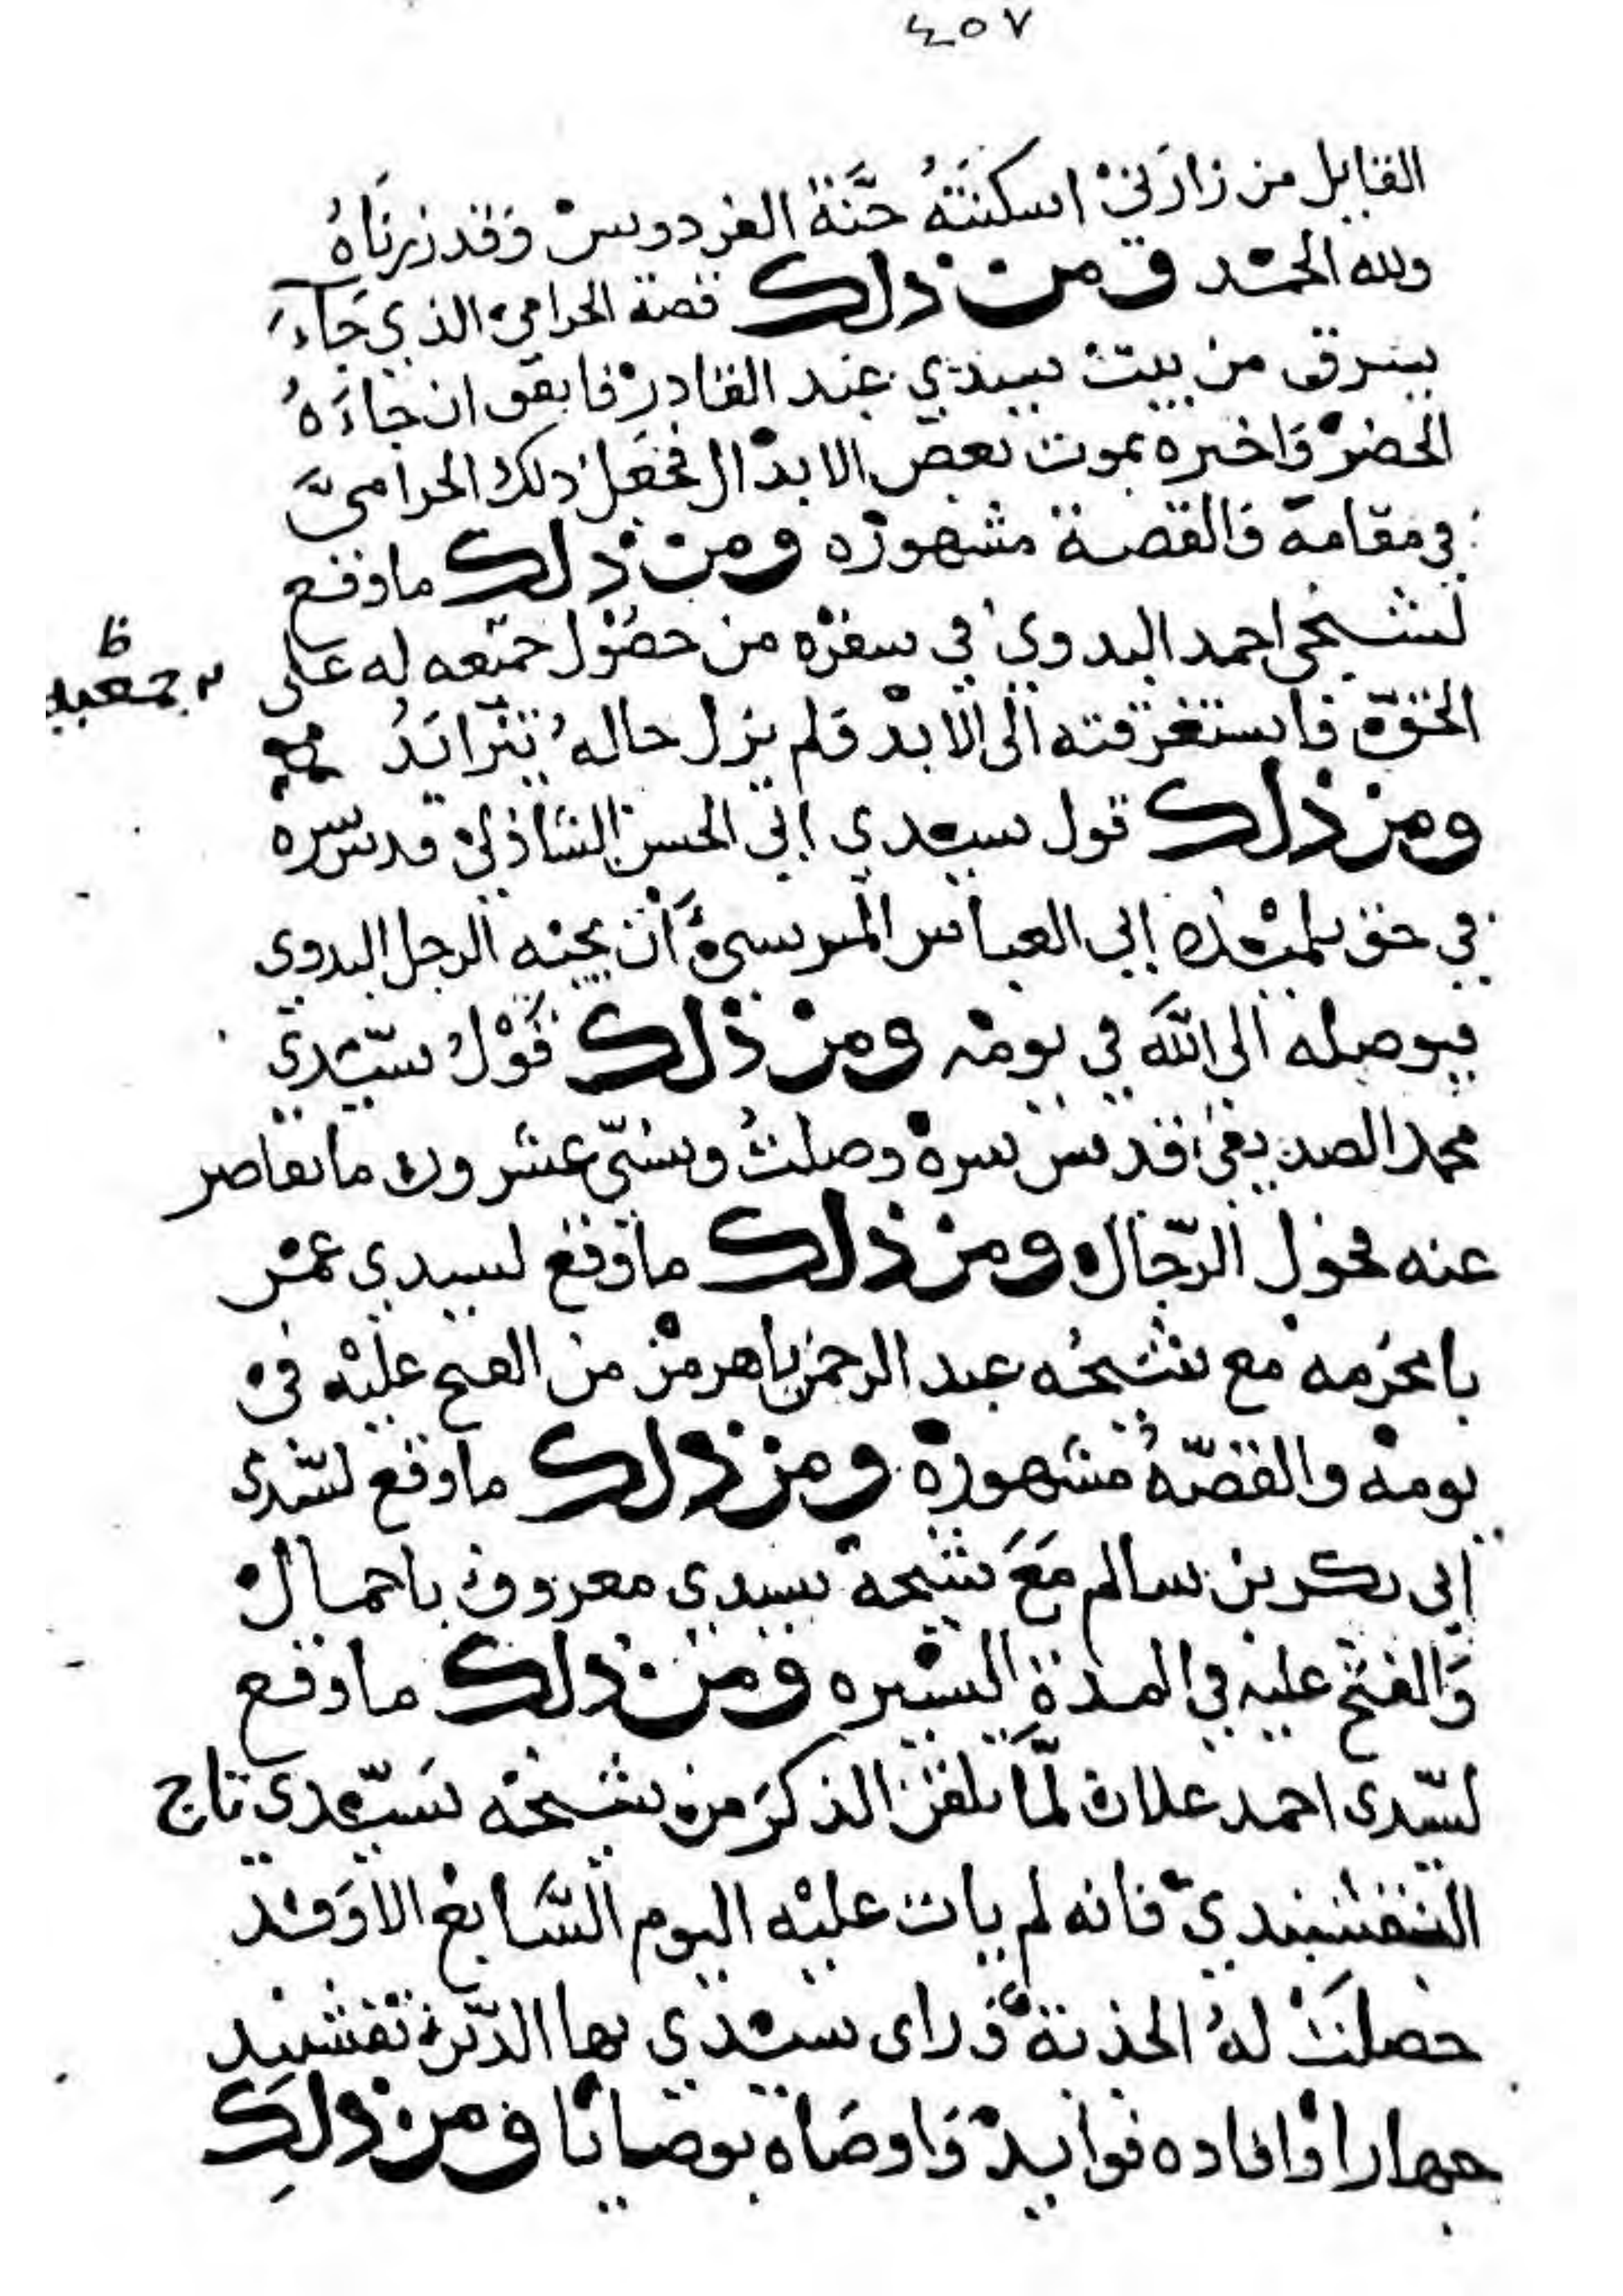 ٤٥٧
القايل من زارَنيْ اسكنتهُ جَنَّة الفردوسْ وَقد زرنَاهُ
ولله الحمد ومن ذلك قصة الحرامي الذي جَآءَ
يسرق من بيت سيدي عبد القادر فاتفق ان جاءَهُ
الخضر وَاخبره بموت بعض الابدال فجعل ذلك الحراميَّ
في مقامه وَالقصة مشهوره ومن ذلك ما وقع
لشيخي احمد البدوي في سفره من حصُول جمعه له على
الحق فاستغرقته الى الابد فلم يزل حالهُ يتزايَدُ
ومن ذلك قول سيدي ابي الحسن الشاذلي قدس سره
في حق تلميذه ابي العباس المرسي أن يجيه الرجل البدوي
فيوصله الى الله في يومه ومن ذلك قَوْلُ سيّدي
محمد الصديقي قدس سره وصلتُ وسنّي عشرون ما تقاصر
عنه فحول الرّجال ومن ذلك ما وقع لسيدي عمر
بامخرمه مع شيخه عبد الرحمن باهرمز من الفتح عليه في
يومه والقصّهُ مشهورة ومن ذلك ما وقع لسّيدي
ابي بكر بن سالم مَعَ شيخه سيدي معروف باجمال
وَالفتح عليه في المدة اليسيره ومن ذلك ما وقع
لسّيدي احمد علان لمَّا تلقن الذكرَ من شيخه سَيّدي تاج
النقشبندي فانه لم يات عليه اليوم السَّابع الا وَقد
حصلَتْ لهُ الجذبة وراى سيدي بها الدّين نقشبند
جهارا وافاده فوايد وَاوصَاه بوصايا ومن ذلكِ